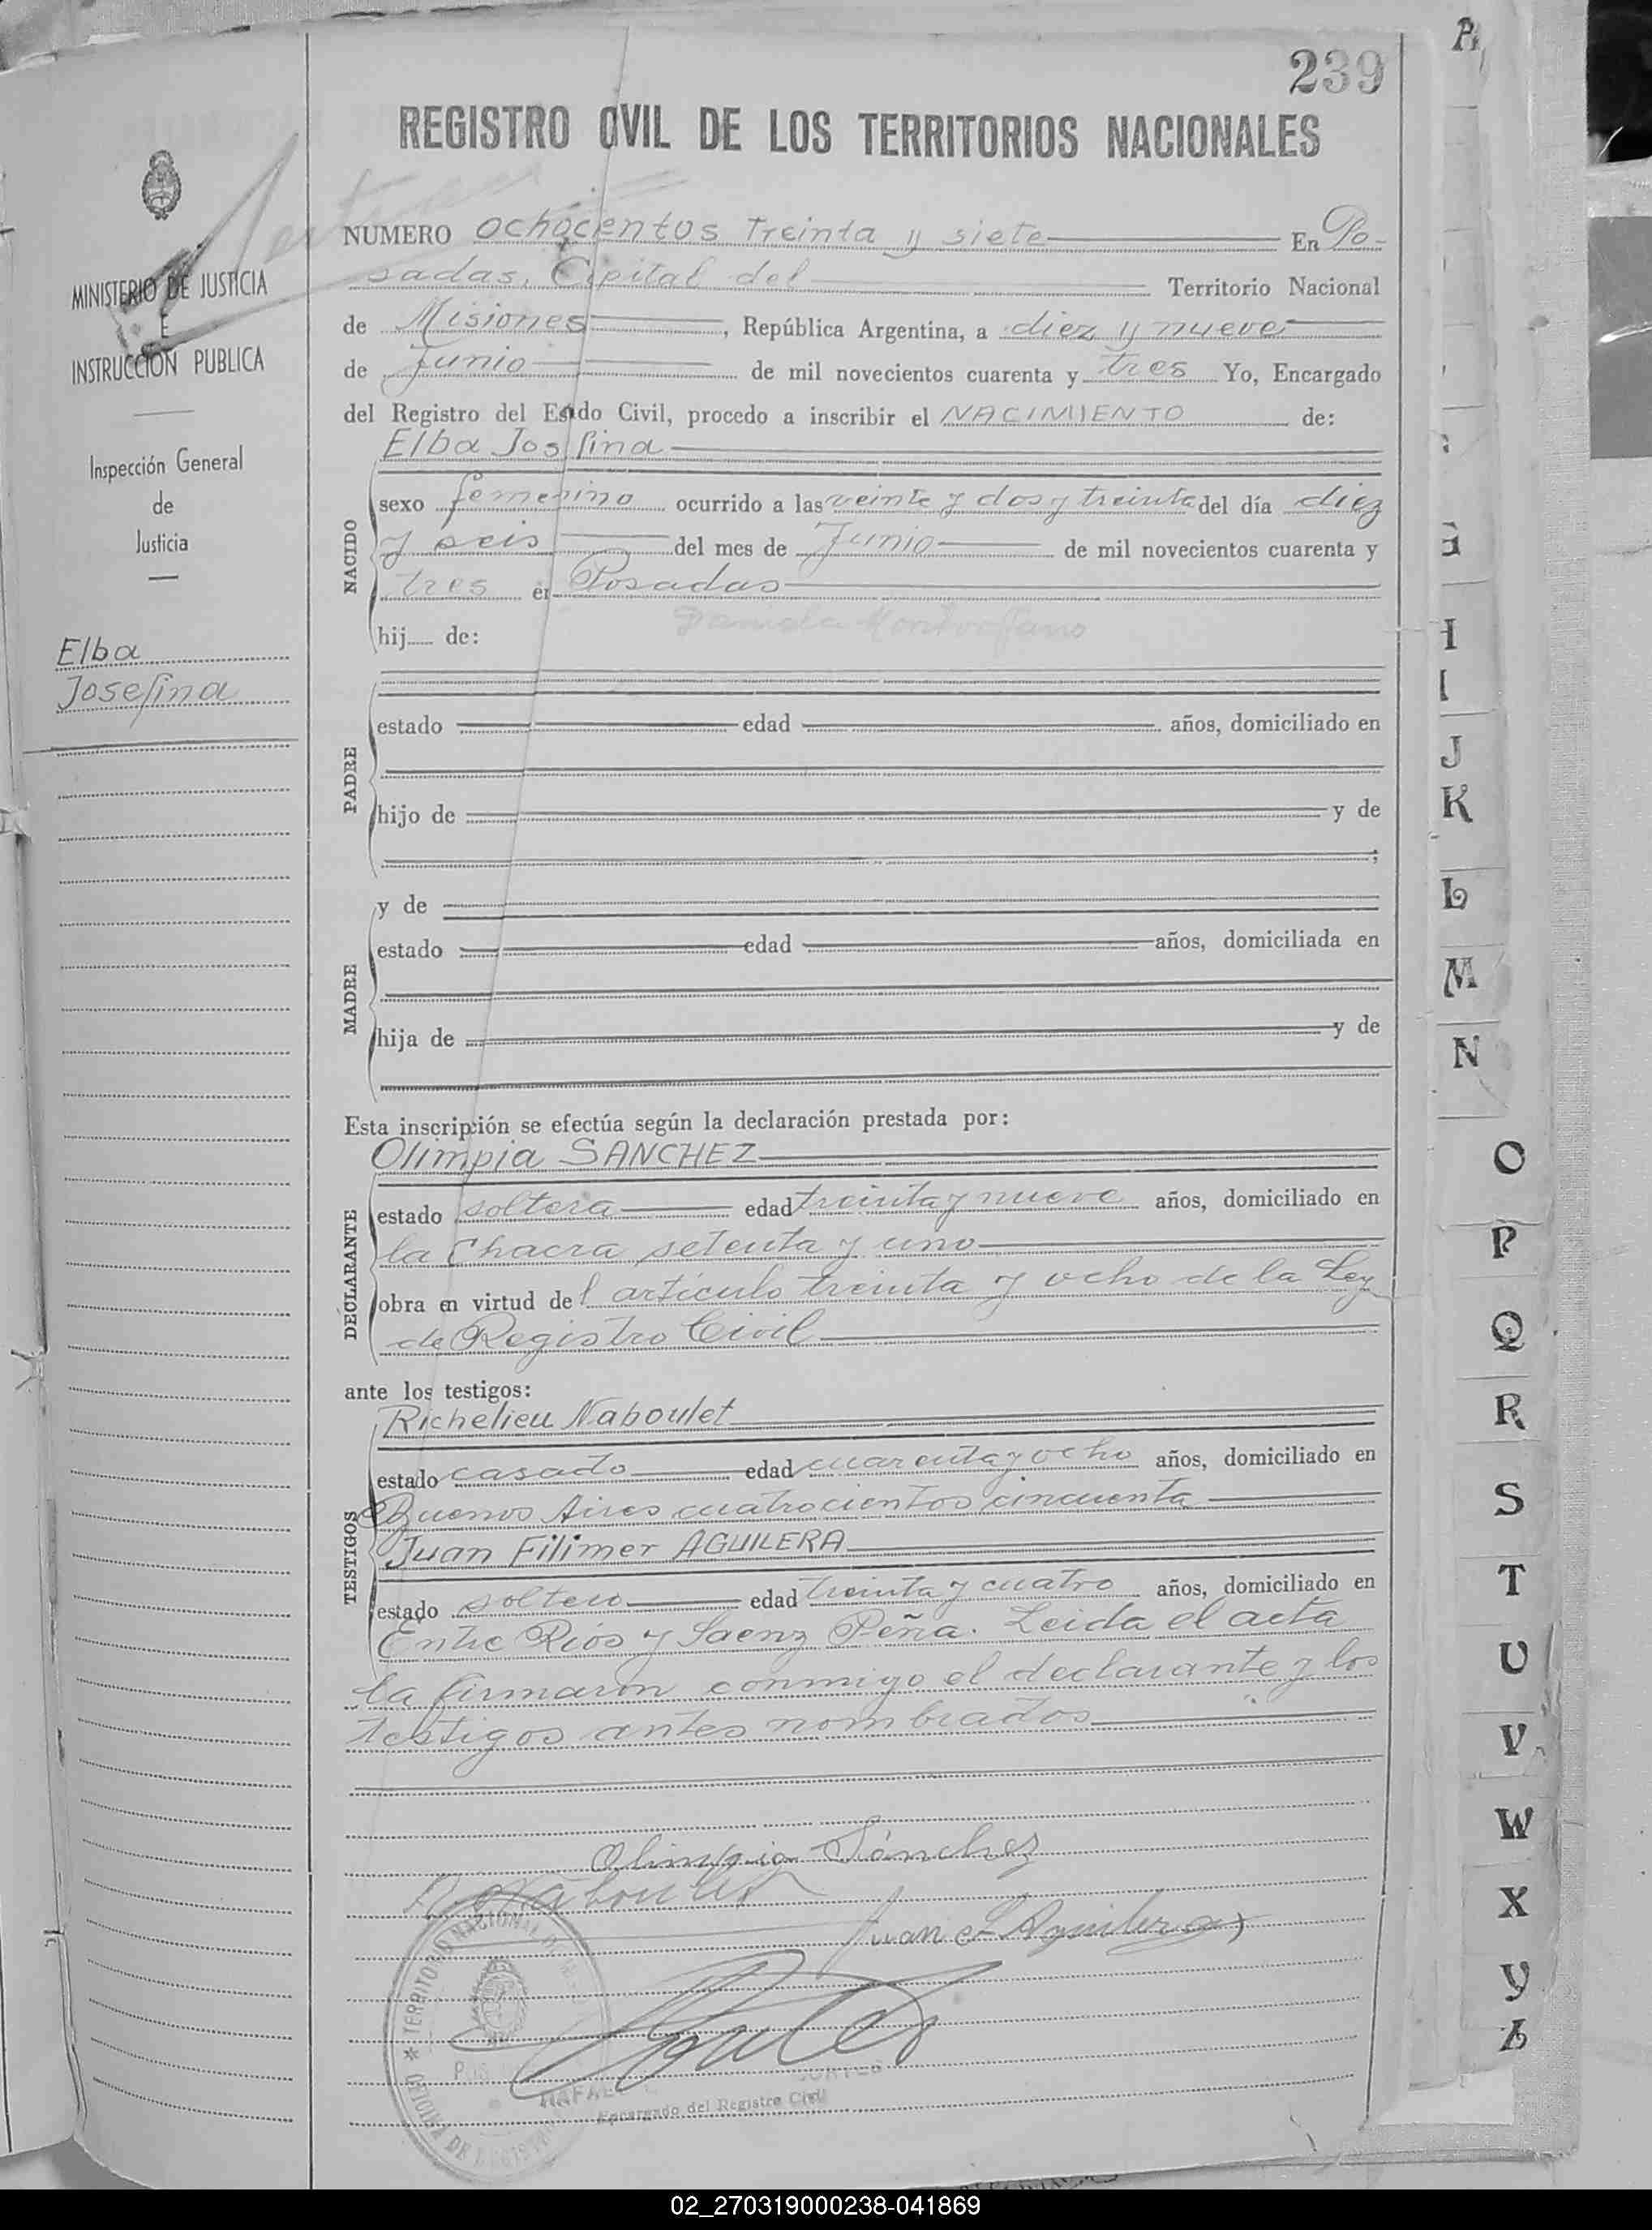 239
REGISTRO CIVIL DE LOS TERRITORIOS NACIONALES
MINISTERIO DE JUSTICIA
E
INSTRUCCION PUBLICA
Inspección General
de
Justicia
Elba
Josefina
NUMERO ochocientos treinta y siete En Po-
sadas, Capital del Territorio Nacional
de Misiones, República Argentina, a diez y nueve
de Junio de mil novecientos cuarenta y tres Yo, Encargado
del Registro del Estado Civil, procedo a inscribir el NACIMIENTO de:
NACIDO
Elba Josefina
sexo femenino ocurrido a las veinte y dos y treinta del día diez
y seis del mes de Junio de mil novecientos cuarenta y
tres en Posadas
hij de:
PADRE
estado edad años, domiciliado en
hijo de y de
;
MADRE
y de
estado edad años, domiciliada en
hija de y de
Esta inscripción se efectúa según la declaración prestada por:
DECLARANTE
Olimpia SANCHEZ
estado soltera edad treinta y nueve años, domiciliado en
la Chacra setenta y uno
obra en virtud del artículo treinta y ocho de la Ley
de Registro Civil
ante los testigos:
TESTIGOS
Richelieu Naboulet
estado casado edad cuarenta y ocho años, domiciliado en
Buenos Aires cuatrocientos cincuenta
Juan Filimer AGUILERA
estado soltero edad treinta y cuatro años, domiciliado en
Entre Ríos y Saenz Peña. Leida el acta
la firmaron conmigo el declarante y los
testigos antes nombrados
Olimpia Sánchez
R. Naboulet
Juan F Aguilera
TERRITORIO NACIONAL DE
OFICINA DE
Encargado del Registro Civil
I
J
K
L
M
N
O
P
Q
R
S
T
U
V
W
X
Y
Z
02_270319000238-041869